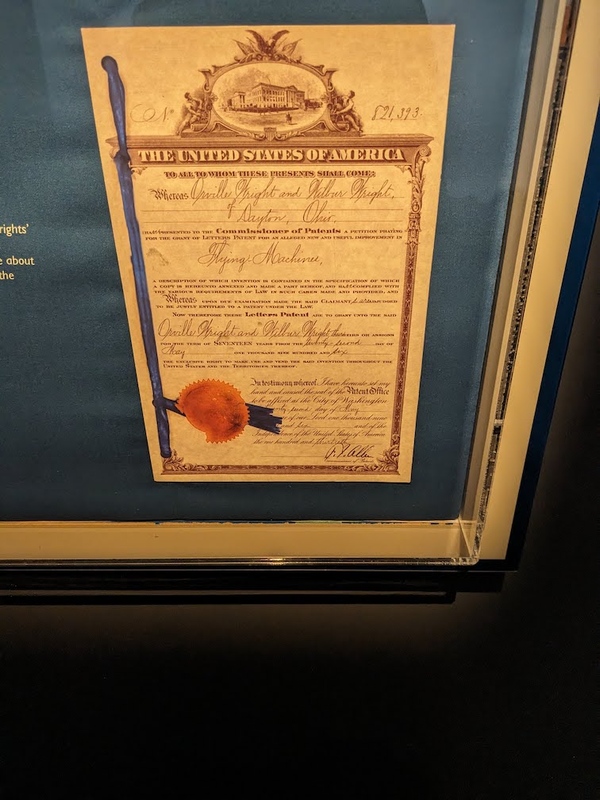 No 821,393.
THE UNITED STATES OF AMERICA
TO ALL TO WHOM THESE PRESENTS SHALL COME:
Whereas Orville Wright and Wilbur Wright,
of Dayton, Ohio,
PRESENTED TO THE Commissioner of Patents A PETITION PRAYING
FOR THE GRANT OF LETTERS PATENT FOR AN ALLEGED NEW AND USEFUL IMPROVEMENT IN
Flying Machines,
rights'
A DESCRIPTION OF WHICH INVENTION IS CONTAINED IN THE SPECIFICATION OF WHICH
e about
A COPY IS HEREUNTO ANNEXED AND MADE A PART HEREOF, AND COMPLIED WITH
the
THE VARIOUS REQUIREMENTS OF LAW IN SUCH CASES MADE AND PROVIDED, AND
Whereas UPON DUE EXAMINATION MADE THE SAID CLAIMANT ADJUDGED
TO BE JUSTLY ENTITLED TO A PATENT UNDER THE LAW.
NOW THEREFORE THESE Letters Patent ARE TO GRANT UNTO THE SAID
Orville Wright and Wilbur Wright, their HEIRS OR ASSIGNS
FOR THE TERM OF SEVENTEEN YEARS FROM THE twenty second DAY OF
May ONE THOUSAND NINE HUNDRED AND six
THE EXCLUSIVE RIGHT TO MAKE USE AND VEND THE SAID INVENTION THROUGHOUT THE
UNITED STATES AND THE TERRITORIES THEREOF.
In testimony whereof, I have hereunto set my
hand and caused the seal of the Patent Office
to be affixed at the City of Washington
second day of May
of our Lord one thousand nine
and of the
Independence of the United States of America
the one hundred and thirtieth.
F. I. Allen